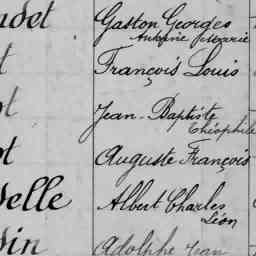 udet Gaston Georges
Antoine Marie
t François Louis
ot Jean-Baptiste
Théophile
ot Auguste François
delle Albert Charles
Léon
din Adolphe Jean